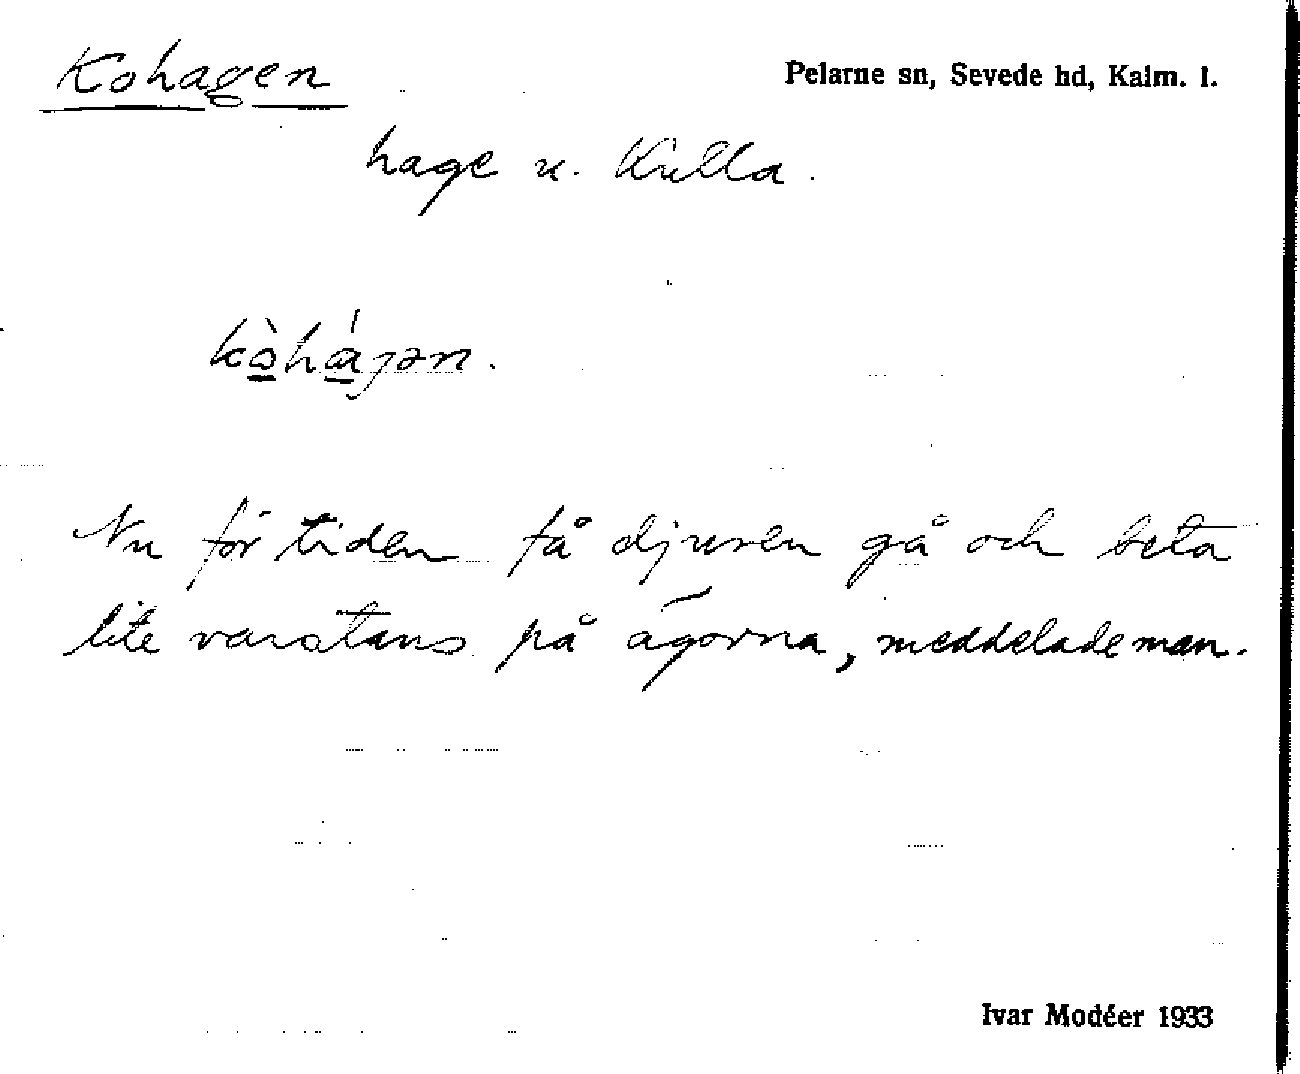 Kohagen
Pelarne sn, Sevede hd, Kalm. l.
hage u. Kulla.
kòhájən.
Nu för tiden få djuren gå och beta
lite varstans på ägorna, meddelade man.
Ivar Modéer 1933